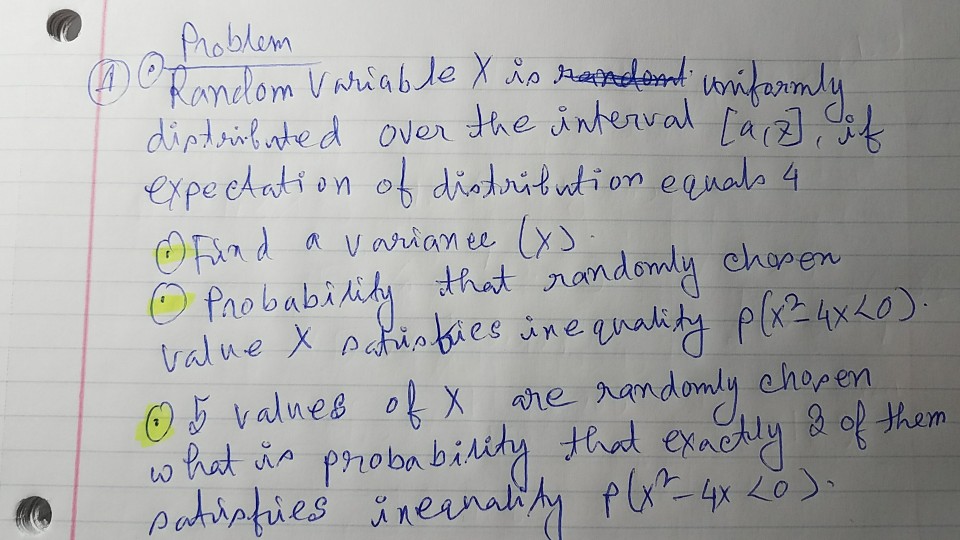 Problem
A) Random Variable X is randomt uniformly
distributed over the interval [a, z], if
expectation of distribution equals 4
Find a variance (X).
Probability that randomly chosen
value X satisfies inequality p(x²-4x<0).
5 values of X are randomly chosen
what is probability that exactly 2 of them
satisfies inequality p(x²-4x<0).